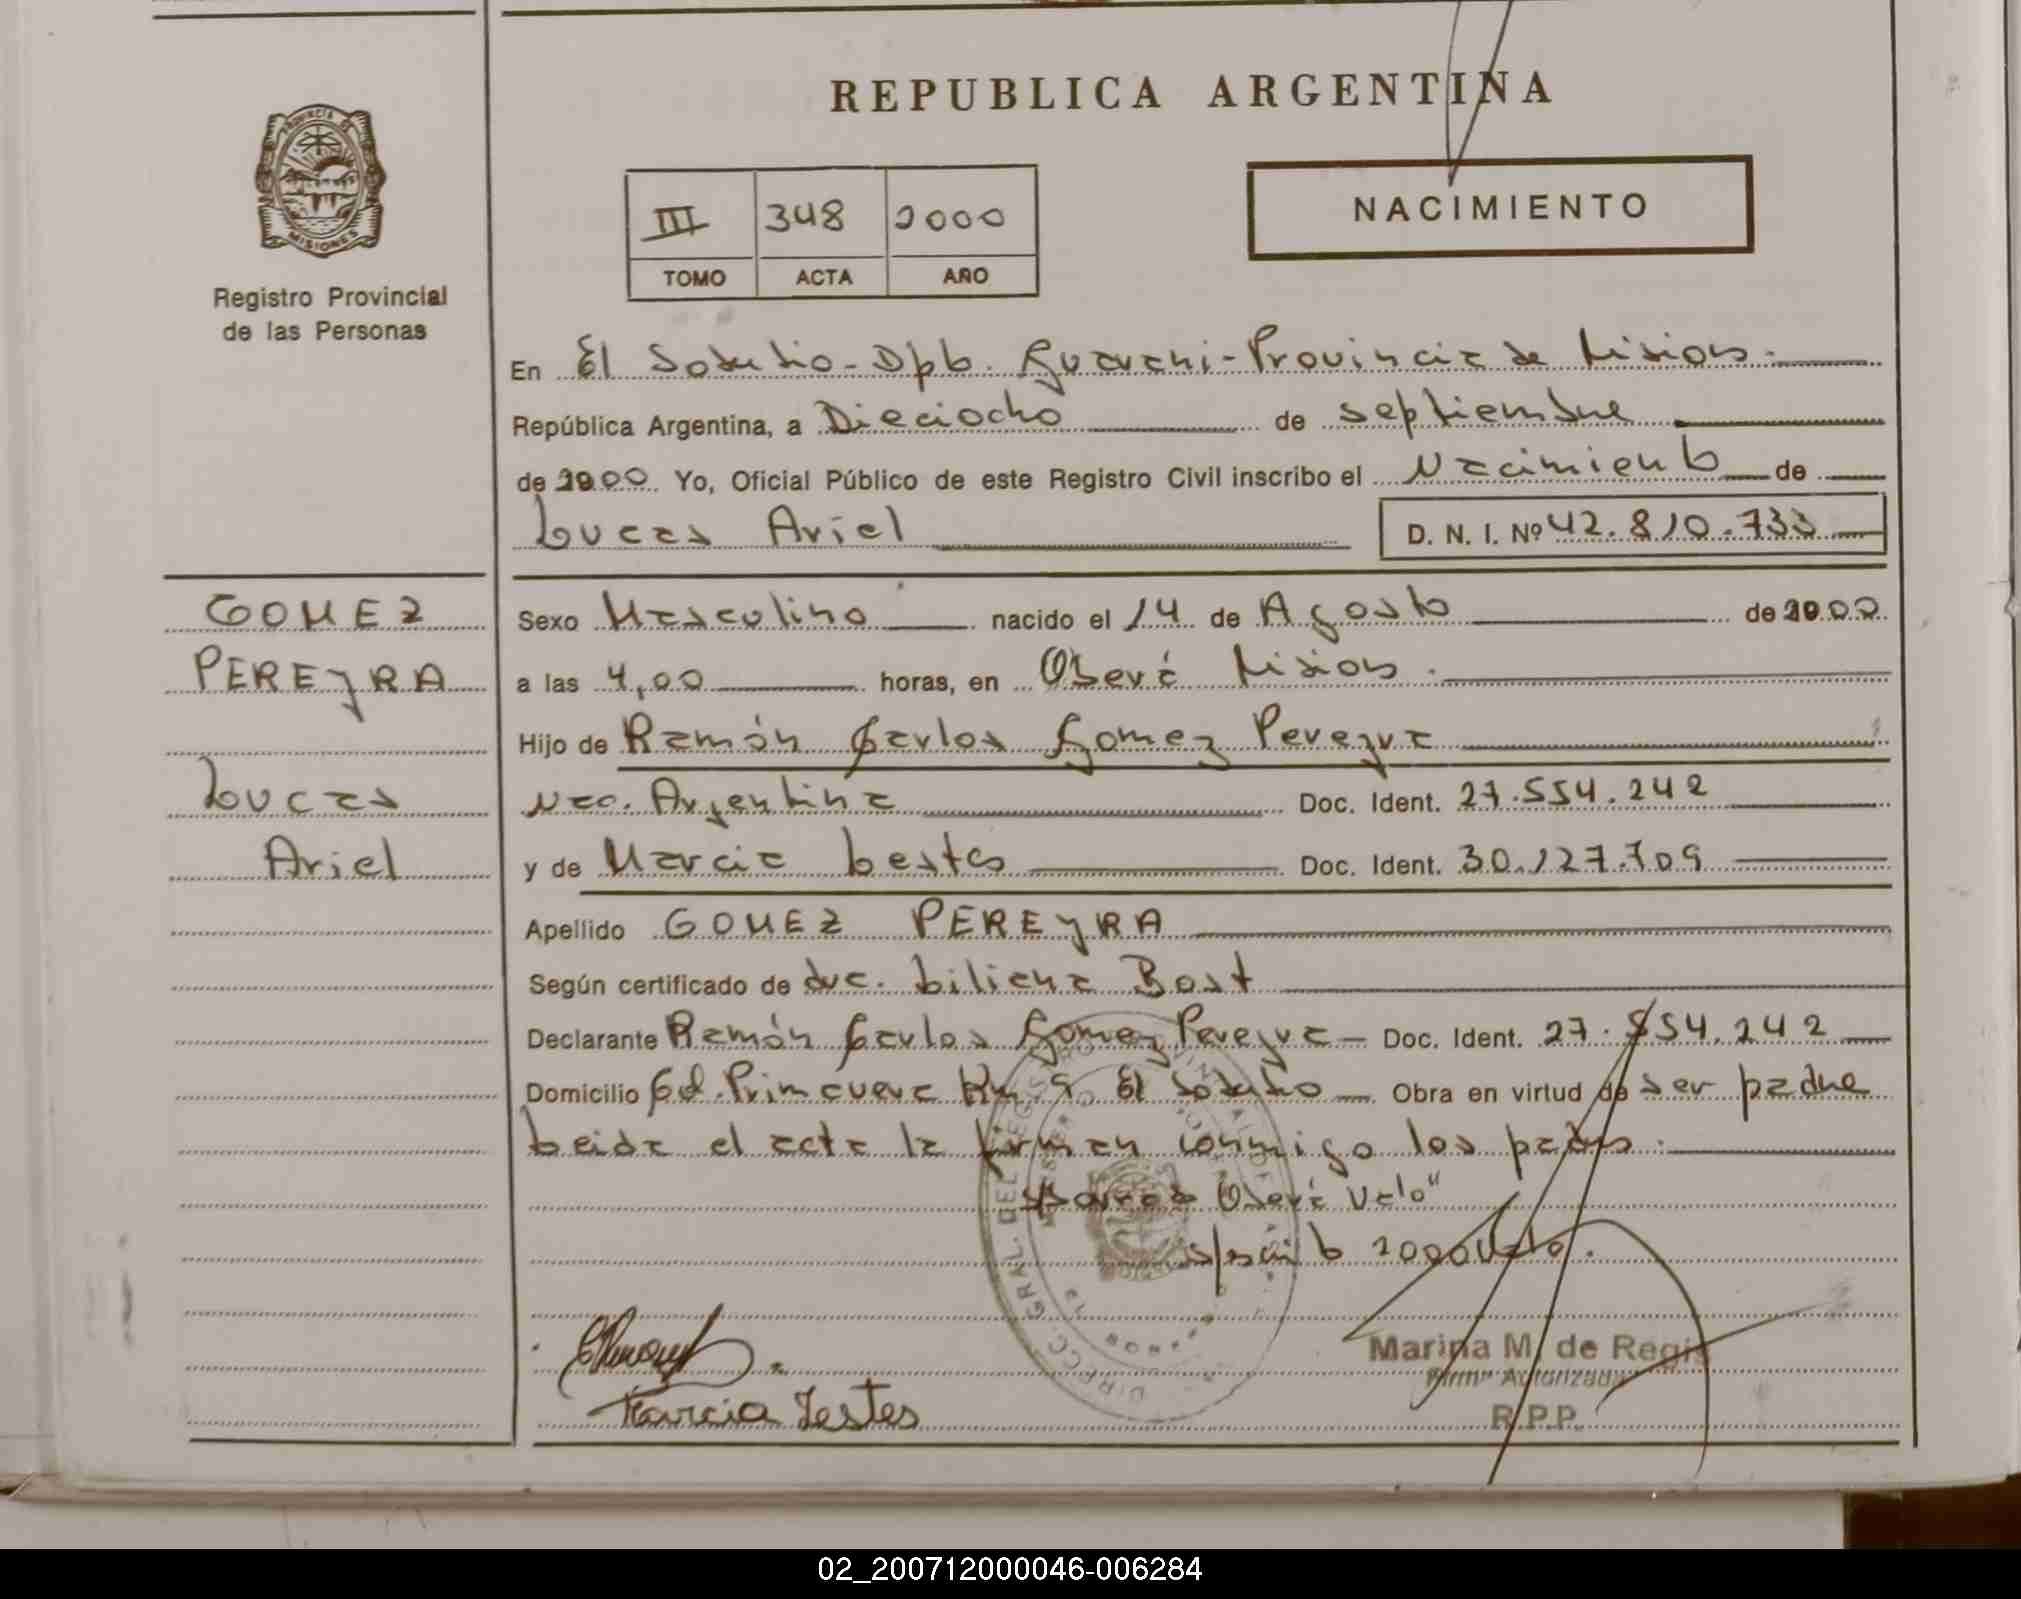 REPUBLICA ARGENTINA
PROVINCIA DE
MISIONES
Registro Provincial
de las Personas
III 348 2000
TOMO ACTA AÑO
NACIMIENTO
En El Soberbio - Dpto. Guarani - Provincia de Misiones.
República Argentina, a Dieciocho de septiembre
de 2000 Yo, Oficial Público de este Registro Civil inscribo el Nacimiento de
Lucas Ariel D. N. I. Nº 42.810.733
GOMEZ
PEREYRA
Lucas
Ariel
Sexo Masculino nacido el 14 de Agosto de 2000
a las 4,00 horas, en Oberá Misiones.
Hijo de Ramón Carlos Gomez Pereyra
Nac. Argentina Doc. Ident. 27.554.242
y de Marcia Lestes Doc. Ident. 30.127.709
Apellido GOMEZ PEREYRA
Según certificado de dra. Liliana Bost
Declarante Ramón Carlos Gomez Pereyra - Doc. Ident. 27.554.242
Domicilio Col. Primavera Km. 9 El Soberbio Obra en virtud de ser padre
Leida el acta la firman conmigo los padres.
Oberá Vale"
2000 Vale.
Marcia Lestes
Marina M. de Regis
Firma Autorizada
R.P.P.
02_200712000046-006284